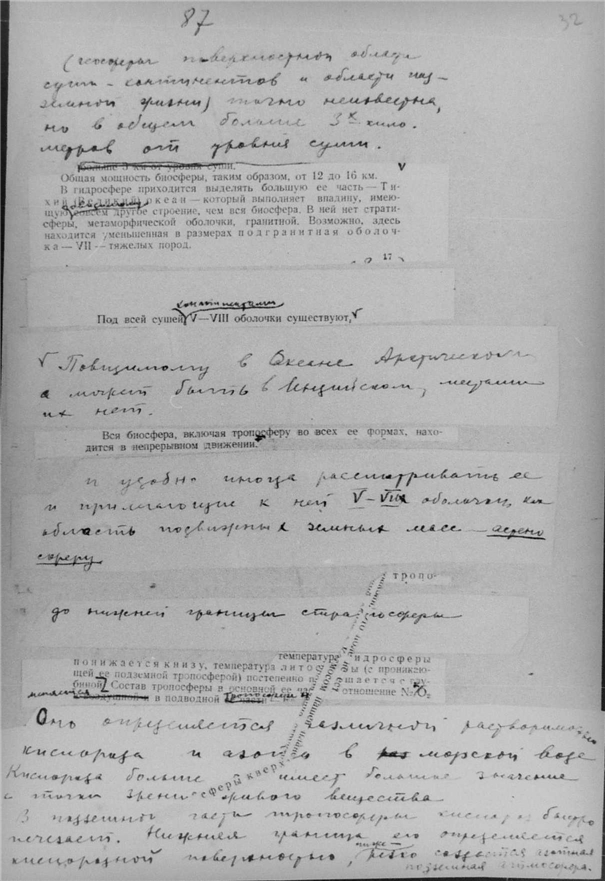 87
32
(геосферы поверхностной области
суши – континентов и области на-
земной жизни) точно неизвестна,
но в общем больше 3х кило-
метров от уровня суши.
больше 3 км от уровня суши.
Общая мощность биосферы, таким образом, от 12 до 16 км.
В гидросфере приходится выделять большую ее часть — Ти-
хий (Великий) океан — который выполняет впадину, имею-
щую совсем другое строение, чем вся биосфера. В ней нет страти-
сферы, метаморфической оболочки, гранитной. Возможно, здесь
находится уменьшенная в размерах подгранитная оболоч-
ка — VII — тяжелых пород.
17
континентами
Под всей сушей V—VIII оболочки существуют,
Повидимому в Океане Арктическом
а может быть в Индийском, местами
их нет.
Вся биосфера, включая тропосферу во всех ее формах, нахо-
дится в непрерывном движении.
и удобно иногда рассматривать ее
и прилегающие к ней V–VIII оболочки, как
область подвижных земных масс – астено
сферу
тропо
до нижней границы стратосферы
температура гидросферы
понижается книзу, температура лито
щей ее подземной тропосферой) постепенно
биной. Состав тропосферы в основной ее
меняется
тропосферы
в подводной
отношение N₂/O₂
Оно определяется различной растворимостью
кислорода и азота в морской воде
Кислорода больше имеет большое значение
с точки зрения живого вещества
В подземной части тропосферы кислород быстро
исчезает. Нижняя граница его определяется
кислородной поверхностью, ниже создается азотная
подземная атмосфера.